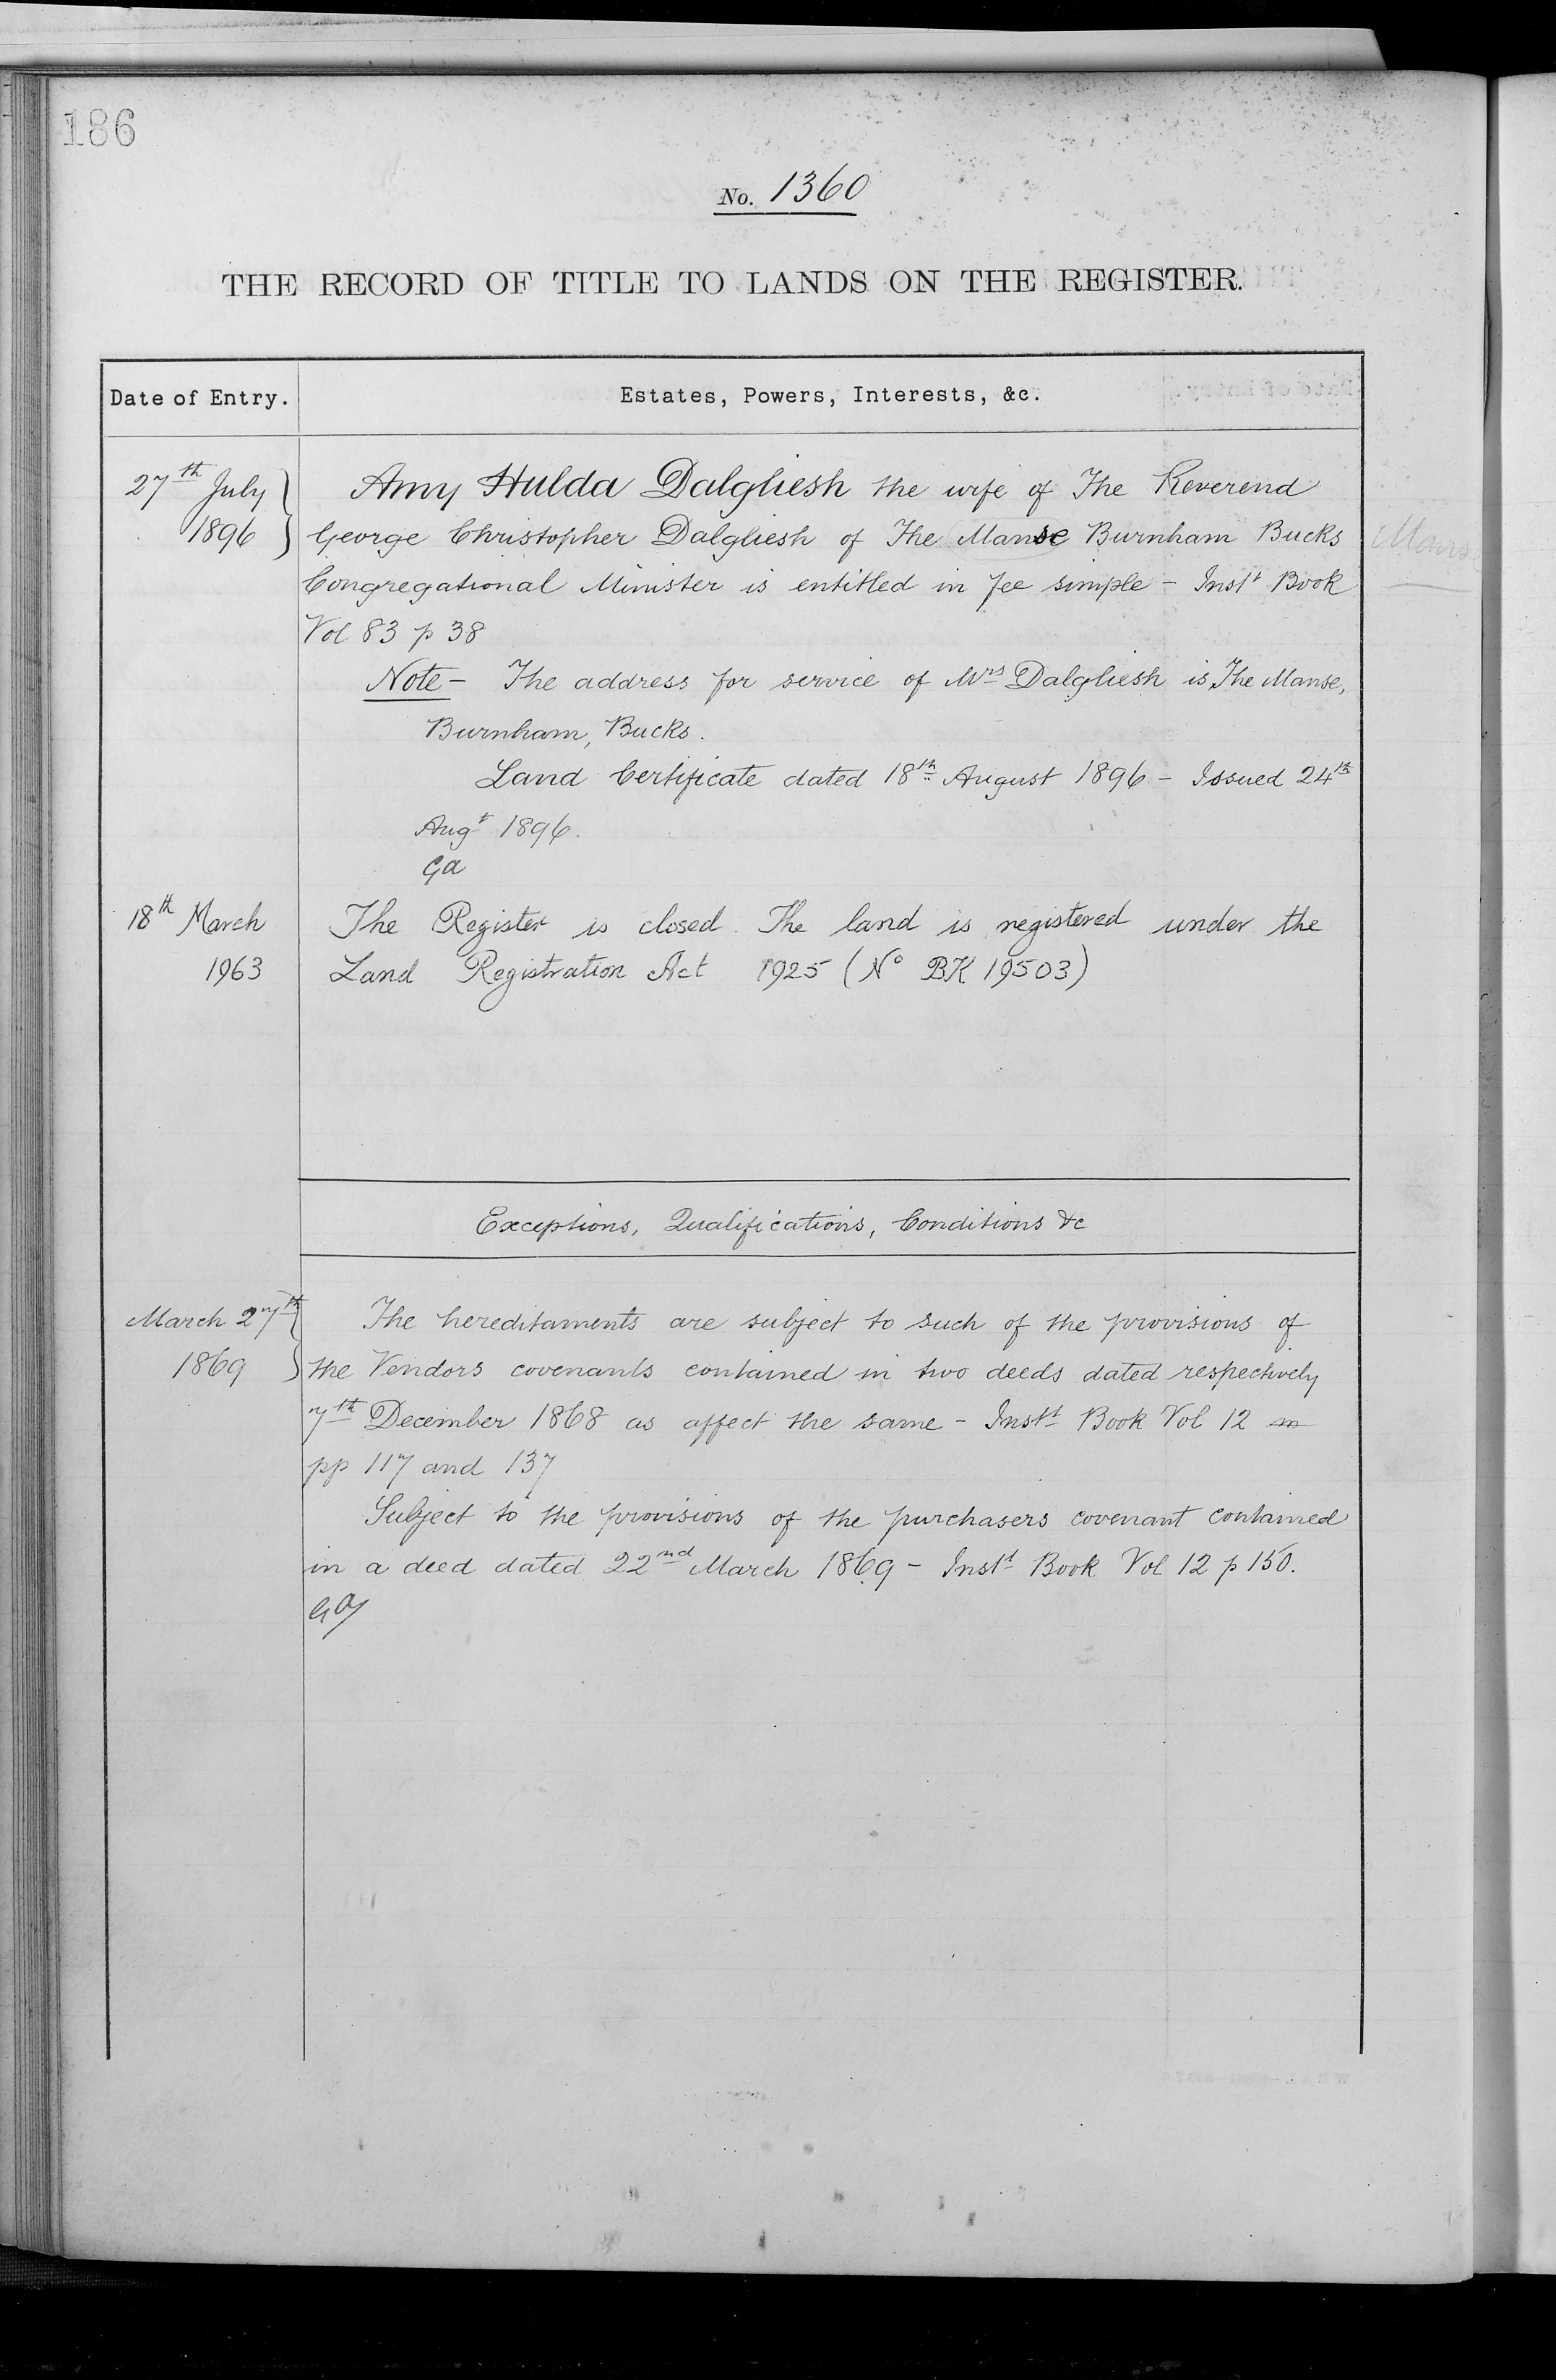 186
No. 1360
THE RECORD OF TITLE TO LANDS ON THE REGISTER.
Date of Entry.
Estates, Powers, Interests, &c.
27th July
1896
Amy Hulda Dalgliesh the wife of The Reverend
George Christopher Dalgliesh of The Manse Burnham Bucks
Manse
Congregational Minister is entitled in fee simple - Inst Book
Vol 83 p 38
Note - The address for service of Mrs Dalgliesh is The Manse,
Burnham, Bucks.
Land Certificate dated 18th August 1896 - Issued 24th
Augt 1896.
Ga
18th March
1963
The Register is closed. The land is registered under the
Land Registration Act 1925 (No BK 19503)
Exceptions, Qualifications, Conditions &c
March 27th
1869
The hereditaments are subject to such of the provisions of
the Vendors covenants contained in two deeds dated respectively
7th December 1868 as affect the same - Instt Book Vol 12
pp 117 and 137
Subject to the provisions of the purchasers covenant contained
in a deed dated 22nd March 1869 - Instt Book Vol 12 p 150.